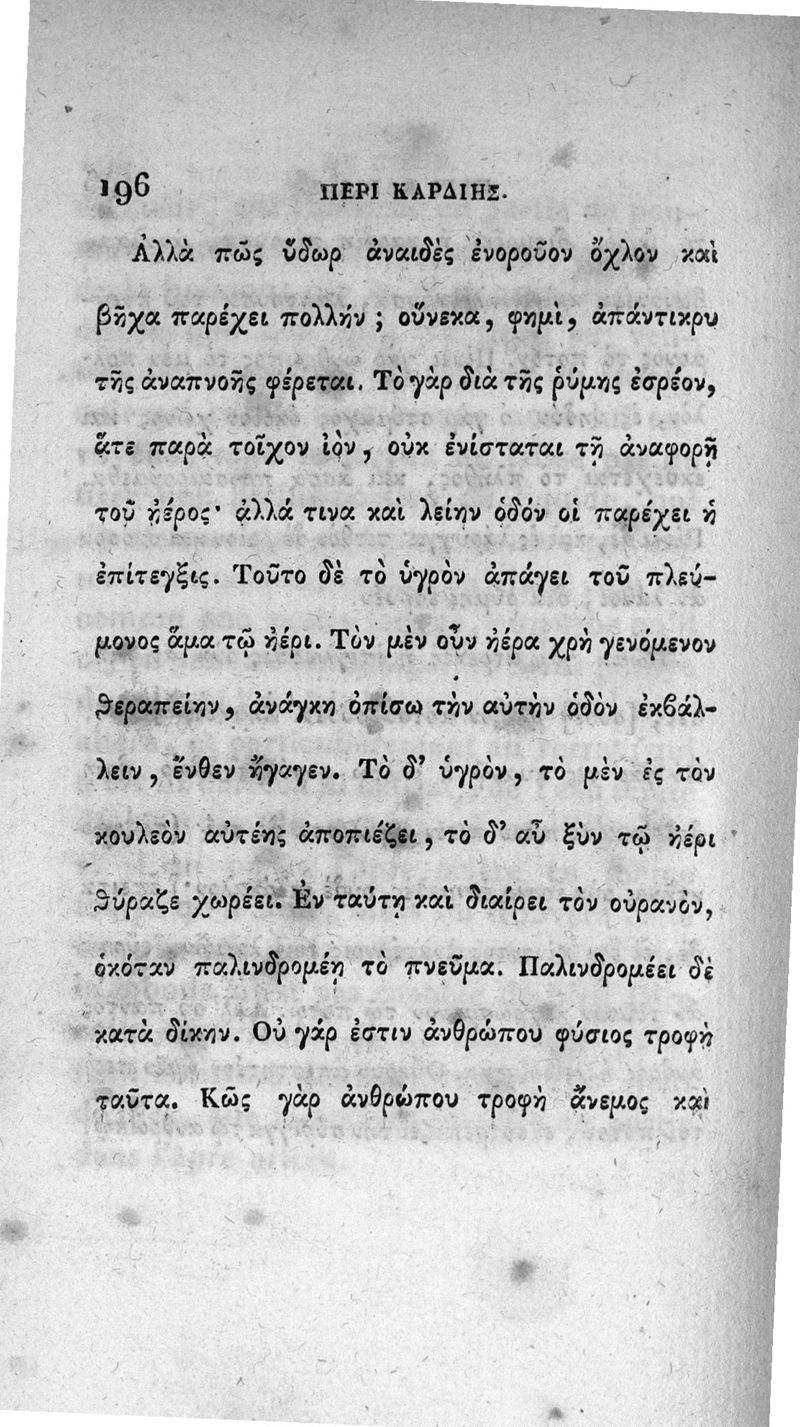 196 ΠΕΡΙ ΚΑΡΔΙΗΣ.
Ἀλλὰ πῶς ὕδωρ ἀναιδὲς ἐνοροῦον ὄχλον καὶ
βῆχα παρέχει πολλήν ; οὕνεκα, φημὶ, ἀπάντικρυ
τῆς ἀναπνοῆς φέρεται. Τὸ γὰρ διὰ τῆς ῥύμης ἐσρέον,
ἅτε παρὰ τοῖχον ἰὸν, οὐκ ἐνίσταται τῇ ἀναφορῇ
τοῦ ἠέρος· ἀλλά τινα καὶ λείην ὁδόν οἱ παρέχει ἡ
ἐπίτεγξις. Τοῦτο δὲ τὸ ὑγρὸν ἀπάγει τοῦ πλεύ-
μονος ἅμα τῷ ἠέρι. Τὸν μὲν οὖν ἠέρα χρὴ γενόμενον
ϑεραπείην, ἀνάγκη ὀπίσω τὴν αὐτὴν ὁδὸν ἐκϐάλ-
λειν, ἔνθεν ἤγαγεν. Τὸ δ’ ὑγρὸν, τὸ μὲν ἐς τὸν
κουλεὸν αὐτέης ἀποπιέζει, τὸ δ’ αὖ ξὺν τῷ ἠέρι
ϑύραζε χωρέει. Ἐν ταύτῃ καὶ διαίρει τὸν οὐρανὸν,
ὁκόταν παλινδρομέῃ τὸ πνεῦμα. Παλινδρομέει δὲ
κατὰ δίκην. Οὐ γάρ ἐστιν ἀνθρώπου φύσιος τροφὴ
ταῦτα. Κῶς γὰρ ἀνθρώπου τροφὴ ἄνεμος καὶ